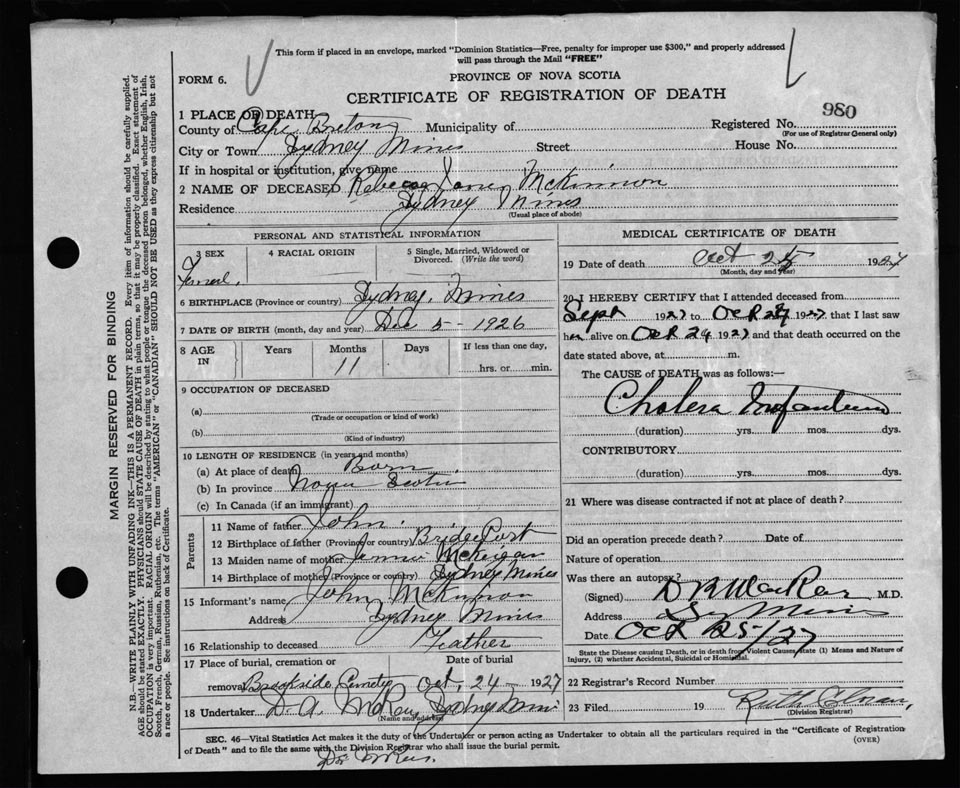 This form if placed in an envelope, marked "Dominion Statistics—Free, penalty for improper use $300," and properly addressed
will pass through the Mail "FREE"
FORM 6.
PROVINCE OF NOVA SCOTIA
CERTIFICATE OF REGISTRATION OF DEATH
980
1 PLACE OF DEATH
County of Cape Breton Municipality of Registered No.
(For use of Registrar General only)
City or Town Sydney Mines Street House No.
If in hospital or institution, give name
2 NAME OF DECEASED Rebecca Jane McKinnon
Residence Sydney Mines
(Usual place of abode)
PERSONAL AND STATISTICAL INFORMATION
3 SEX 4 RACIAL ORIGIN 5 Single, Married, Widowed or
Divorced. (Write the word)
6 BIRTHPLACE (Province or country) Sydney Mines
7 DATE OF BIRTH (month, day and year) Dec 5 - 1926
8 AGE Years Months Days If less than one day,
IN 11 hrs. or min.
9 OCCUPATION OF DECEASED
(a)
(Trade or occupation or kind of work)
(b)
(Kind of industry)
10 LENGTH OF RESIDENCE (in years and months)
(a) At place of death Born
(b) In province Nova Scotia
(c) In Canada (if an immigrant)
Parents
11 Name of father John
12 Birthplace of father (Province or country) Bridgeport
13 Maiden name of mother Jennie McKeigan
14 Birthplace of mother (Province or country) Sydney Mines
15 Informant's name John McKinnon
Address Sydney Mines
16 Relationship to deceased Father
17 Place of burial, cremation or Date of burial
removal Brookside Cemetery Oct, 24 - 1927
18 Undertaker D. A. McKay Sydney Mines
(Name and address)
MEDICAL CERTIFICATE OF DEATH
19 Date of death Oct 192
(Month, day and year)
20 I HEREBY CERTIFY that I attended deceased from
Sept 1927 to Oct 1927 that I last saw
her alive on Oct 24 1927 and that death occurred on the
date stated above, at m.
The CAUSE of DEATH was as follows:—
Cholera Infantum
(duration) yrs. mos. dys.
CONTRIBUTORY
(duration) yrs. mos. dys.
21 Where was disease contracted if not at place of death?
Did an operation precede death? Date of
Nature of operation
Was there an autopsy?
(Signed) M.D.
Address Sy Mines
Date Oct 25/27
State the Disease causing Death, or in death from Violent Causes, state (1) Means and Nature of
Injury, (2) whether Accidental, Suicidal or Homicidal.
22 Registrar's Record Number
23 Filed 19 Ruth
(Division Registrar)
SEC. 46—Vital Statistics Act makes it the duty of the Undertaker or person acting as Undertaker to obtain all the particulars required in the "Certificate of Registration
of Death" and to file the same with the Division Registrar who shall issue the burial permit. (OVER)
MARGIN RESERVED FOR BINDING
N.B.—WRITE PLAINLY WITH UNFADING INK—THIS IS A PERMANENT RECORD. Every item of information should be carefully supplied.
AGE should be stated EXACTLY. PHYSICIANS should STATE CAUSE OF DEATH in plain terms, so that it may be properly classified. Exact statement of
OCCUPATION is very important. RACIAL ORIGIN will be described by stating to what people or tongue the deceased person belonged, whether English, Irish,
Scotch, French, German, Russian, Ruthenian, etc. The terms "AMERICAN" or "CANADIAN" SHOULD NOT BE USED as they express citizenship but not
a race or people. See instructions on back of Certificate.